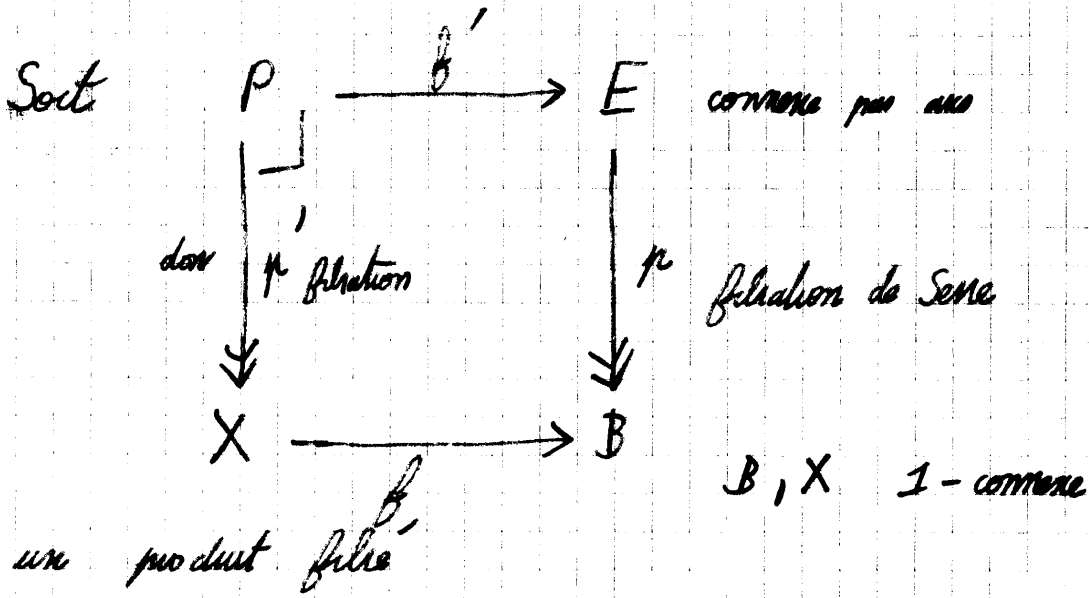 Soit P f' E connexe par arcs
donc p' fibration p fibration de Serre
X f B
B, X 1-connexe
un produit fibré